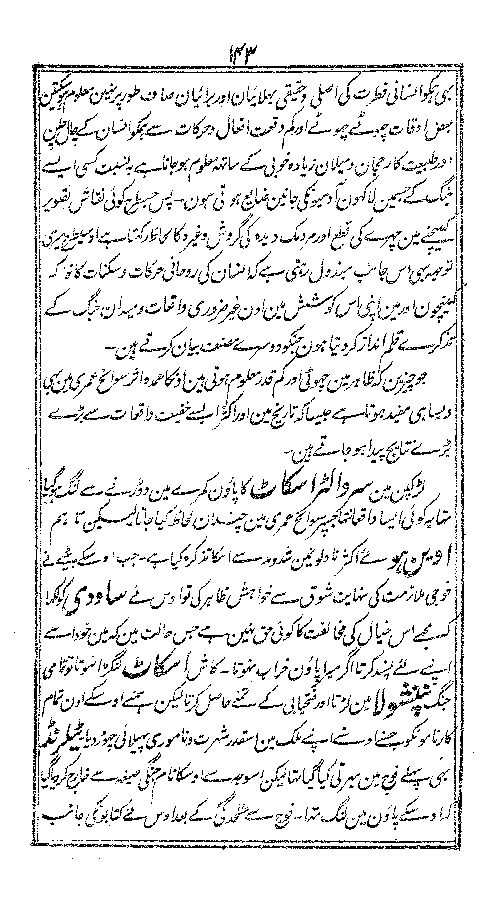 ۱۴۳
بھی ہمکو انسانی فطرت کی اصلی و حقیقی بھلائیان اور برائیان صاف طور پر نہین معلوم ہوسکتین
بعض اوقات چھوٹے چھوٹے اور کم وقعت افعال و حرکات سے ہمکو انسان کے چال چلن
اور طبیعت کا رجحان و میلان زیادہ خوبی کے ساتھ معلوم ہو جاتا ہے بہ نسبت کسی ایسے
جنگ کے جسمین لاکھون آدمیونکی جانین ضایع ہوئی ہون۔ پس جسطرح کوئی نقاش تصویر
کھینچنے مین چہرے کی قطع اور مردمک دیدہ کی گردش وغیرہ کا لحاظ رکھتا ہے اوسیطرح میری
توجہ بھی اس جانب مبذول رہتی ہے کہ انسان کی روحانی حرکات و سکنات کا خاکہ
کھینچون اور مین اپنی اس کوشش مین اون غیر ضروری واقعات و میدان جنگ کے
تذکرے قلم انداز کر دیتا ہون جنکو دوسرے مصنف بیان کرتے ہین۔
جو چیزین کہ ظاہر مین چھوٹی اور کم قدر معلوم ہوتی ہین اونکا عمدہ اثر سوانح عمری مین بھی
ویسا ہی مفید ہوتا ہے جیسا کہ تاریخ مین اور اکثر ایسے خفیف واقعات سے بڑے
بڑے نتایج پیدا ہو جاتے ہین۔
لڑکپن مین سر والٹر اسکاٹ کا پاؤن کمرے مین دوڑنے سے لنگ ہوگیا
تھا یہ کوئی ایسا واقعہ تھا کہ جسپر سوانح عمری مین چندان لحاظ کیا جاتا لیکن تا ہم
نے اکثر ناولونمین شد و مد سے اسکا تذکرہ کیا ہے۔ جب اوسکے بیٹے نے
فوجی ملازمت کی نہایت شوق سے خواہش ظاہر کی تو اوس نے ساودی کو لکھا
کہ مجھے اس خیال کی مخالفت کا کوئی حق نہین ہے جس حالت مین کہ مین خود اسے
اپنے لئے پسند کرتا اگر میرا پاؤن خراب نہوتا۔ کاش اسکاٹ لنگڑا نہوتا تو تمامی
جنگ پنشولا مین لڑتا اور فتحیابی کے تمغے حاصل کرتا لیکن ہمنے اوسکے اون تمام
کارنامونکو جسنے اوسنے اپنے ملک مین اسقدر شہرت و ناموری پھیلائی چھوڑ دیا۔
بھی پہلے فوج مین بھرتی کیا گیا تھا لیکن اسوجہ سے اوسکا نام جنگی صیغہ سے خارج کردیا گیا
کہ اوسکے پاؤن مین لنگ تھا۔ فوج سے علٰحدگی کے بعد اوس نے کتابونکی جانب